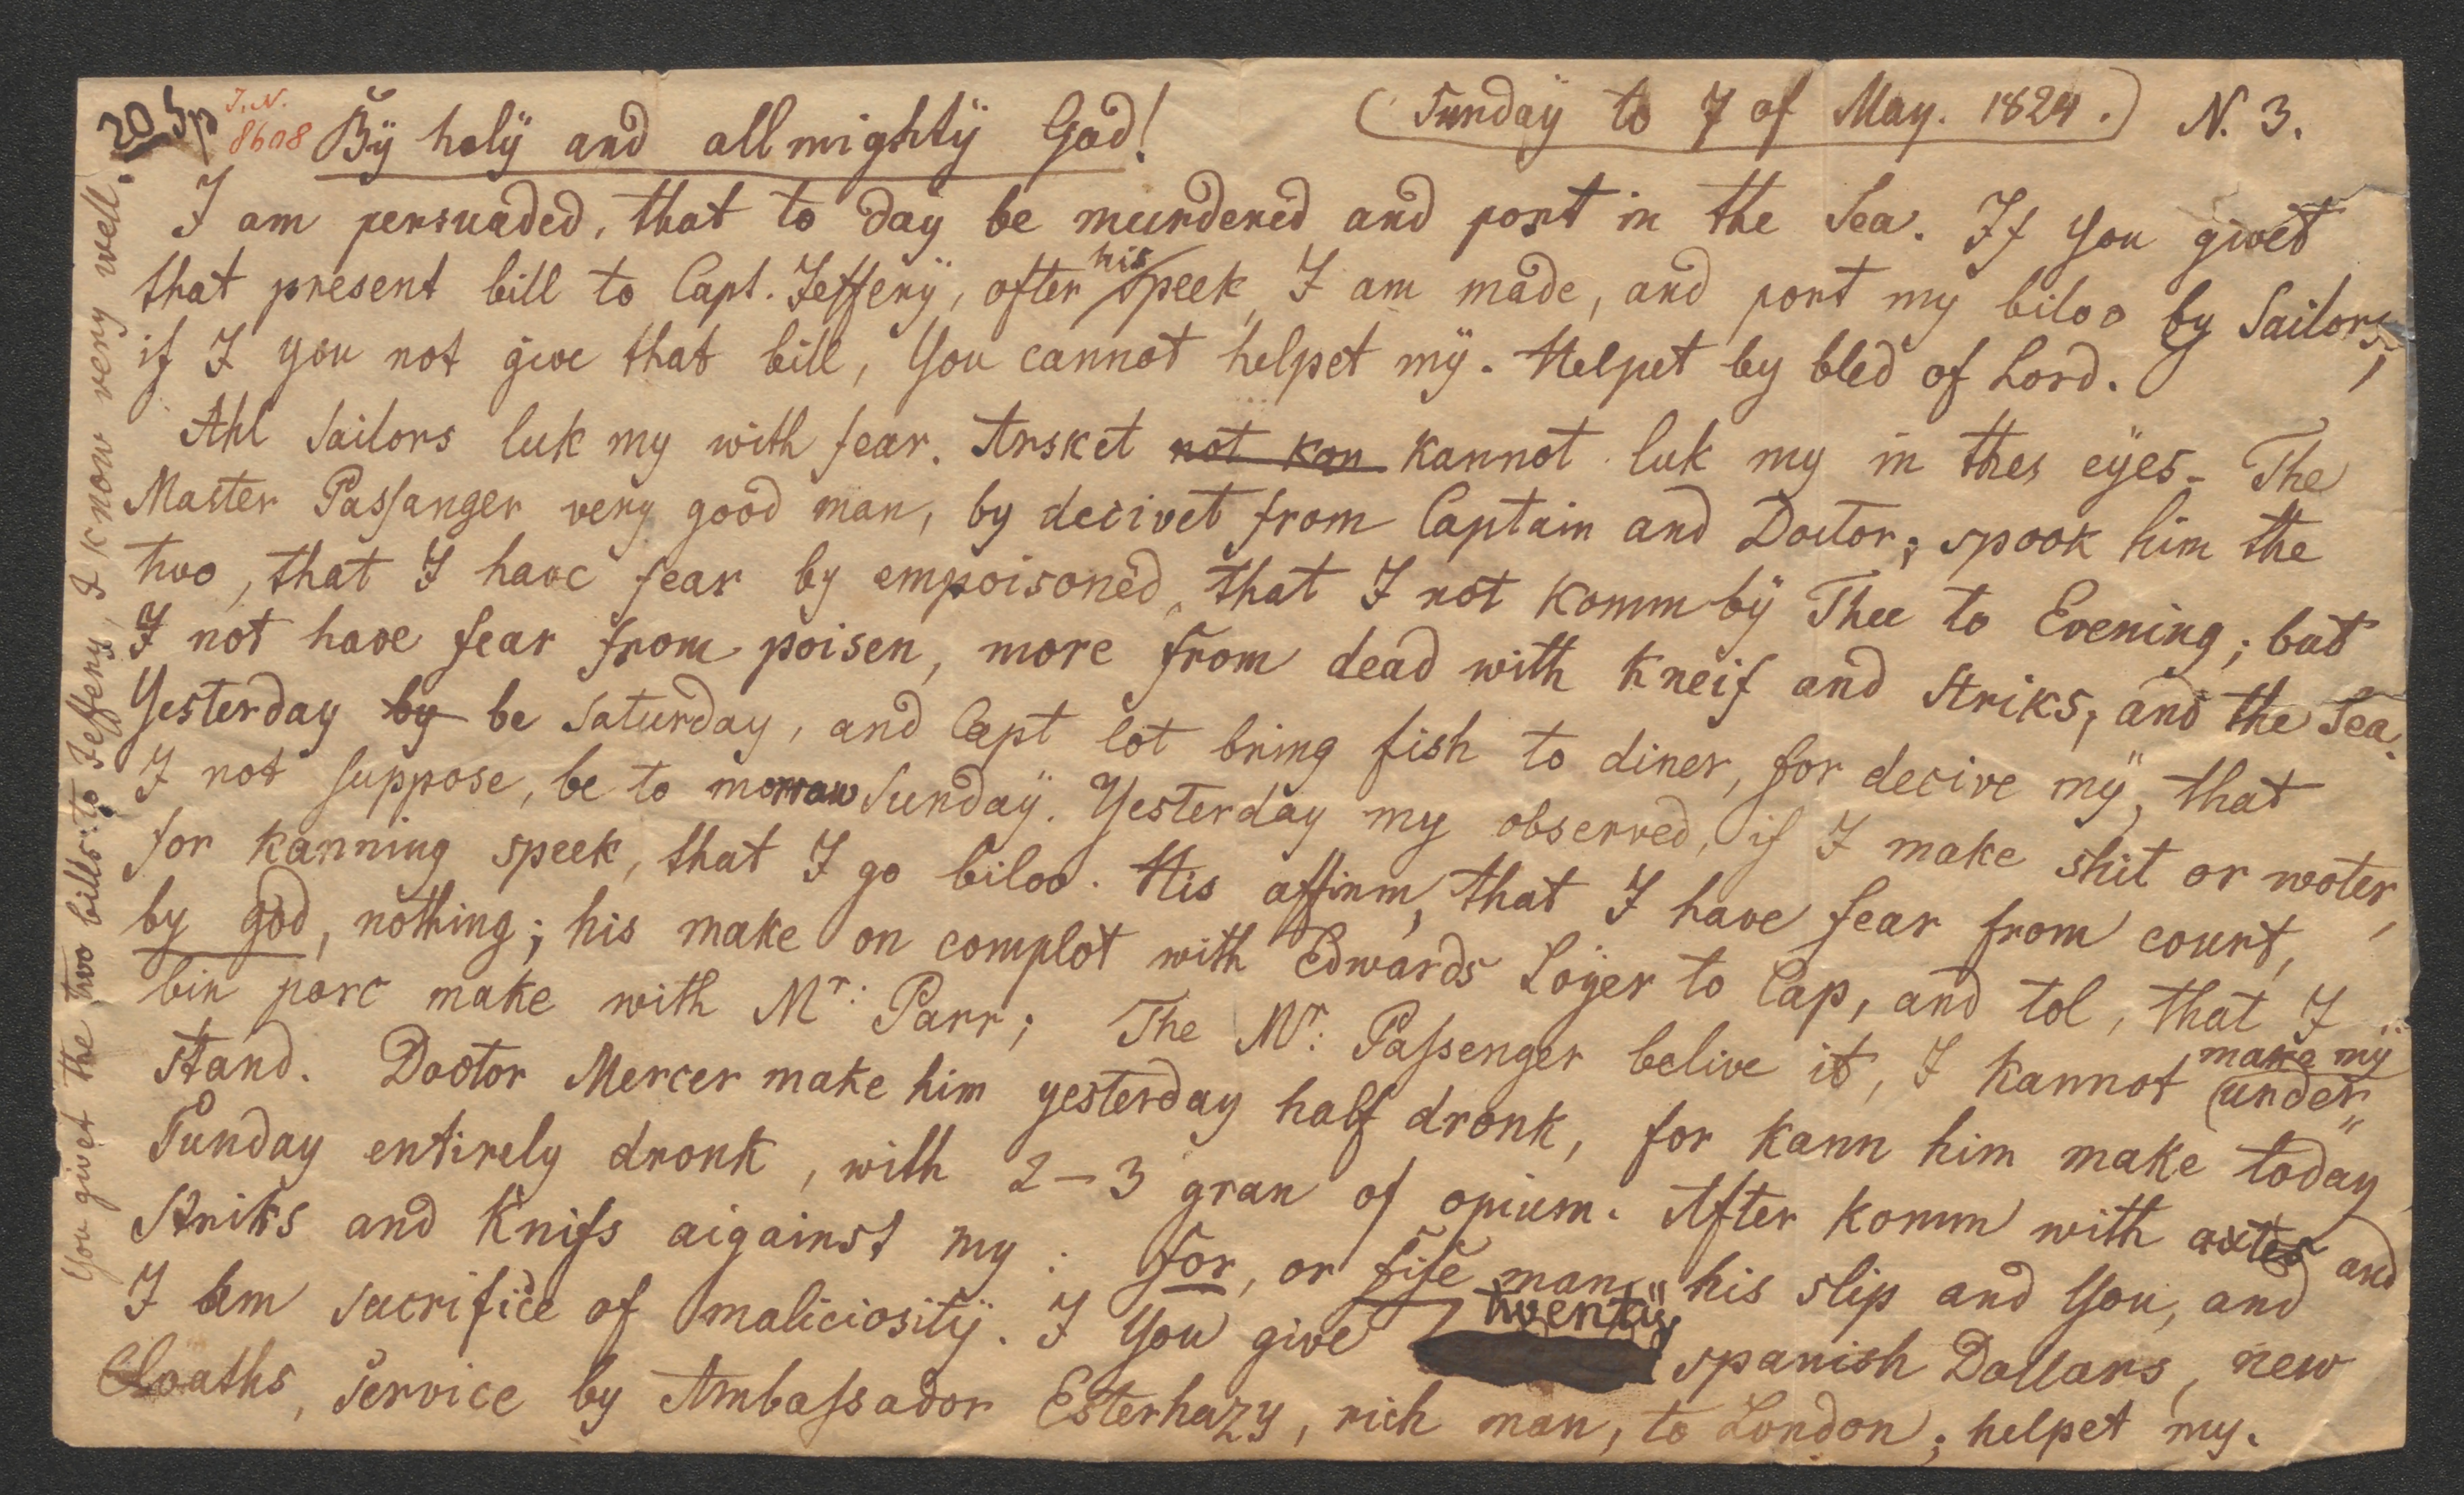 20 Sp
I.N.
8608
Bÿ holÿ and allmightÿ God!
(Sundaÿ to 7 of May. 1824.) N. 3.
I am persuaded, that to day be murdered and port in the Sea. If You givet
that present bill to Capt. Jefferÿ, ofter his speek, I am made, and port my biloo by Sailors,
if I you not give that bill, You cannot helpet mÿ. Helpet by bled of Lord.
Ahl Sailors luk my with fear. Arsket not kan kannot luk my in thes eÿes. The
Master Passanger very good man, by decivet from Captain and Doctor; spook him the
two, that I have fear by empoisoned, that I not komm bÿ Thee to Evening; but
I not have fear from poisen, more from dead with Kneif and Striks, and the Sea.
Yesterday by be Saturday, and Capt lot bring fish to diner, for decive mÿ, that
I not suppose, be to morraw Sundaÿ. Yesterday my observed, if I make shit or woter,
for kanning speek, that I go biloo. His affirm, that I have fear from court,
by god, nothing; his make on complot with Edwards Loÿer to Cap, and tol, that I
bin parc make with Mr: Parr; The Mr: Passenger belive it, I kannot make mÿ under"
stand. Doctor Mercer make him yesterday half dronk, for kann him make today
Sunday entirely dronk, with 2–3 gran of opium. After komm with axtes and
Striks and Knifs aigainst my: for, or fife man, his slip and You, and
I am sacrifice of maliciositÿ. I You give twentÿ spanish Dollars, new
Cloaths, Service by Ambassador Esterhazy, rich man, to London; helpet my.
You givet the two bills to Jeffery, I know very well.